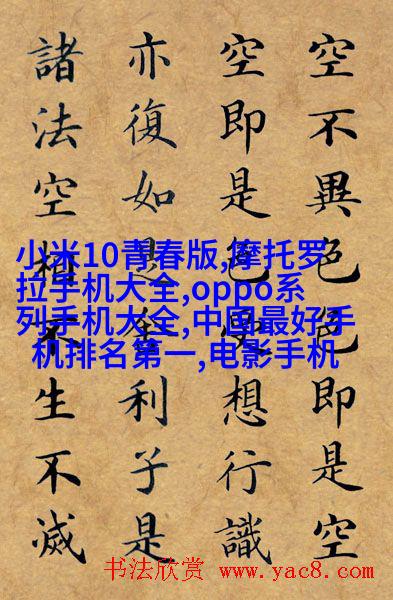 空不異色色即是空
空即是色受想行識
亦復如是舍利子是
諸法空相不生不滅
小米10青春版,摩托罗
拉手机大全,oppo系
列手机大全,中国最好手
机排名第一,电影手机
书法欣赏 www.yac8.com